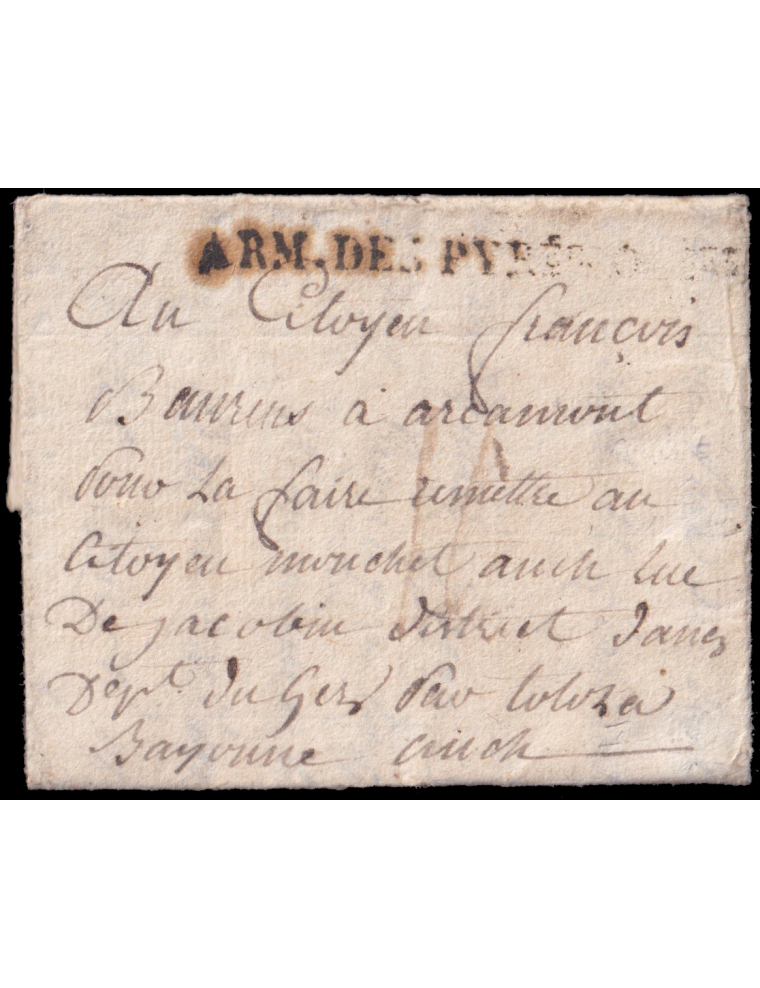 ARM. DES PYRÉ
Au Citoyen françois
Baurens à arcamont
pour La faire remettre au
Citoyen mouchet auch rue
De jacobin district dauch
Dept. du Gers par toloza
Bayonne auch